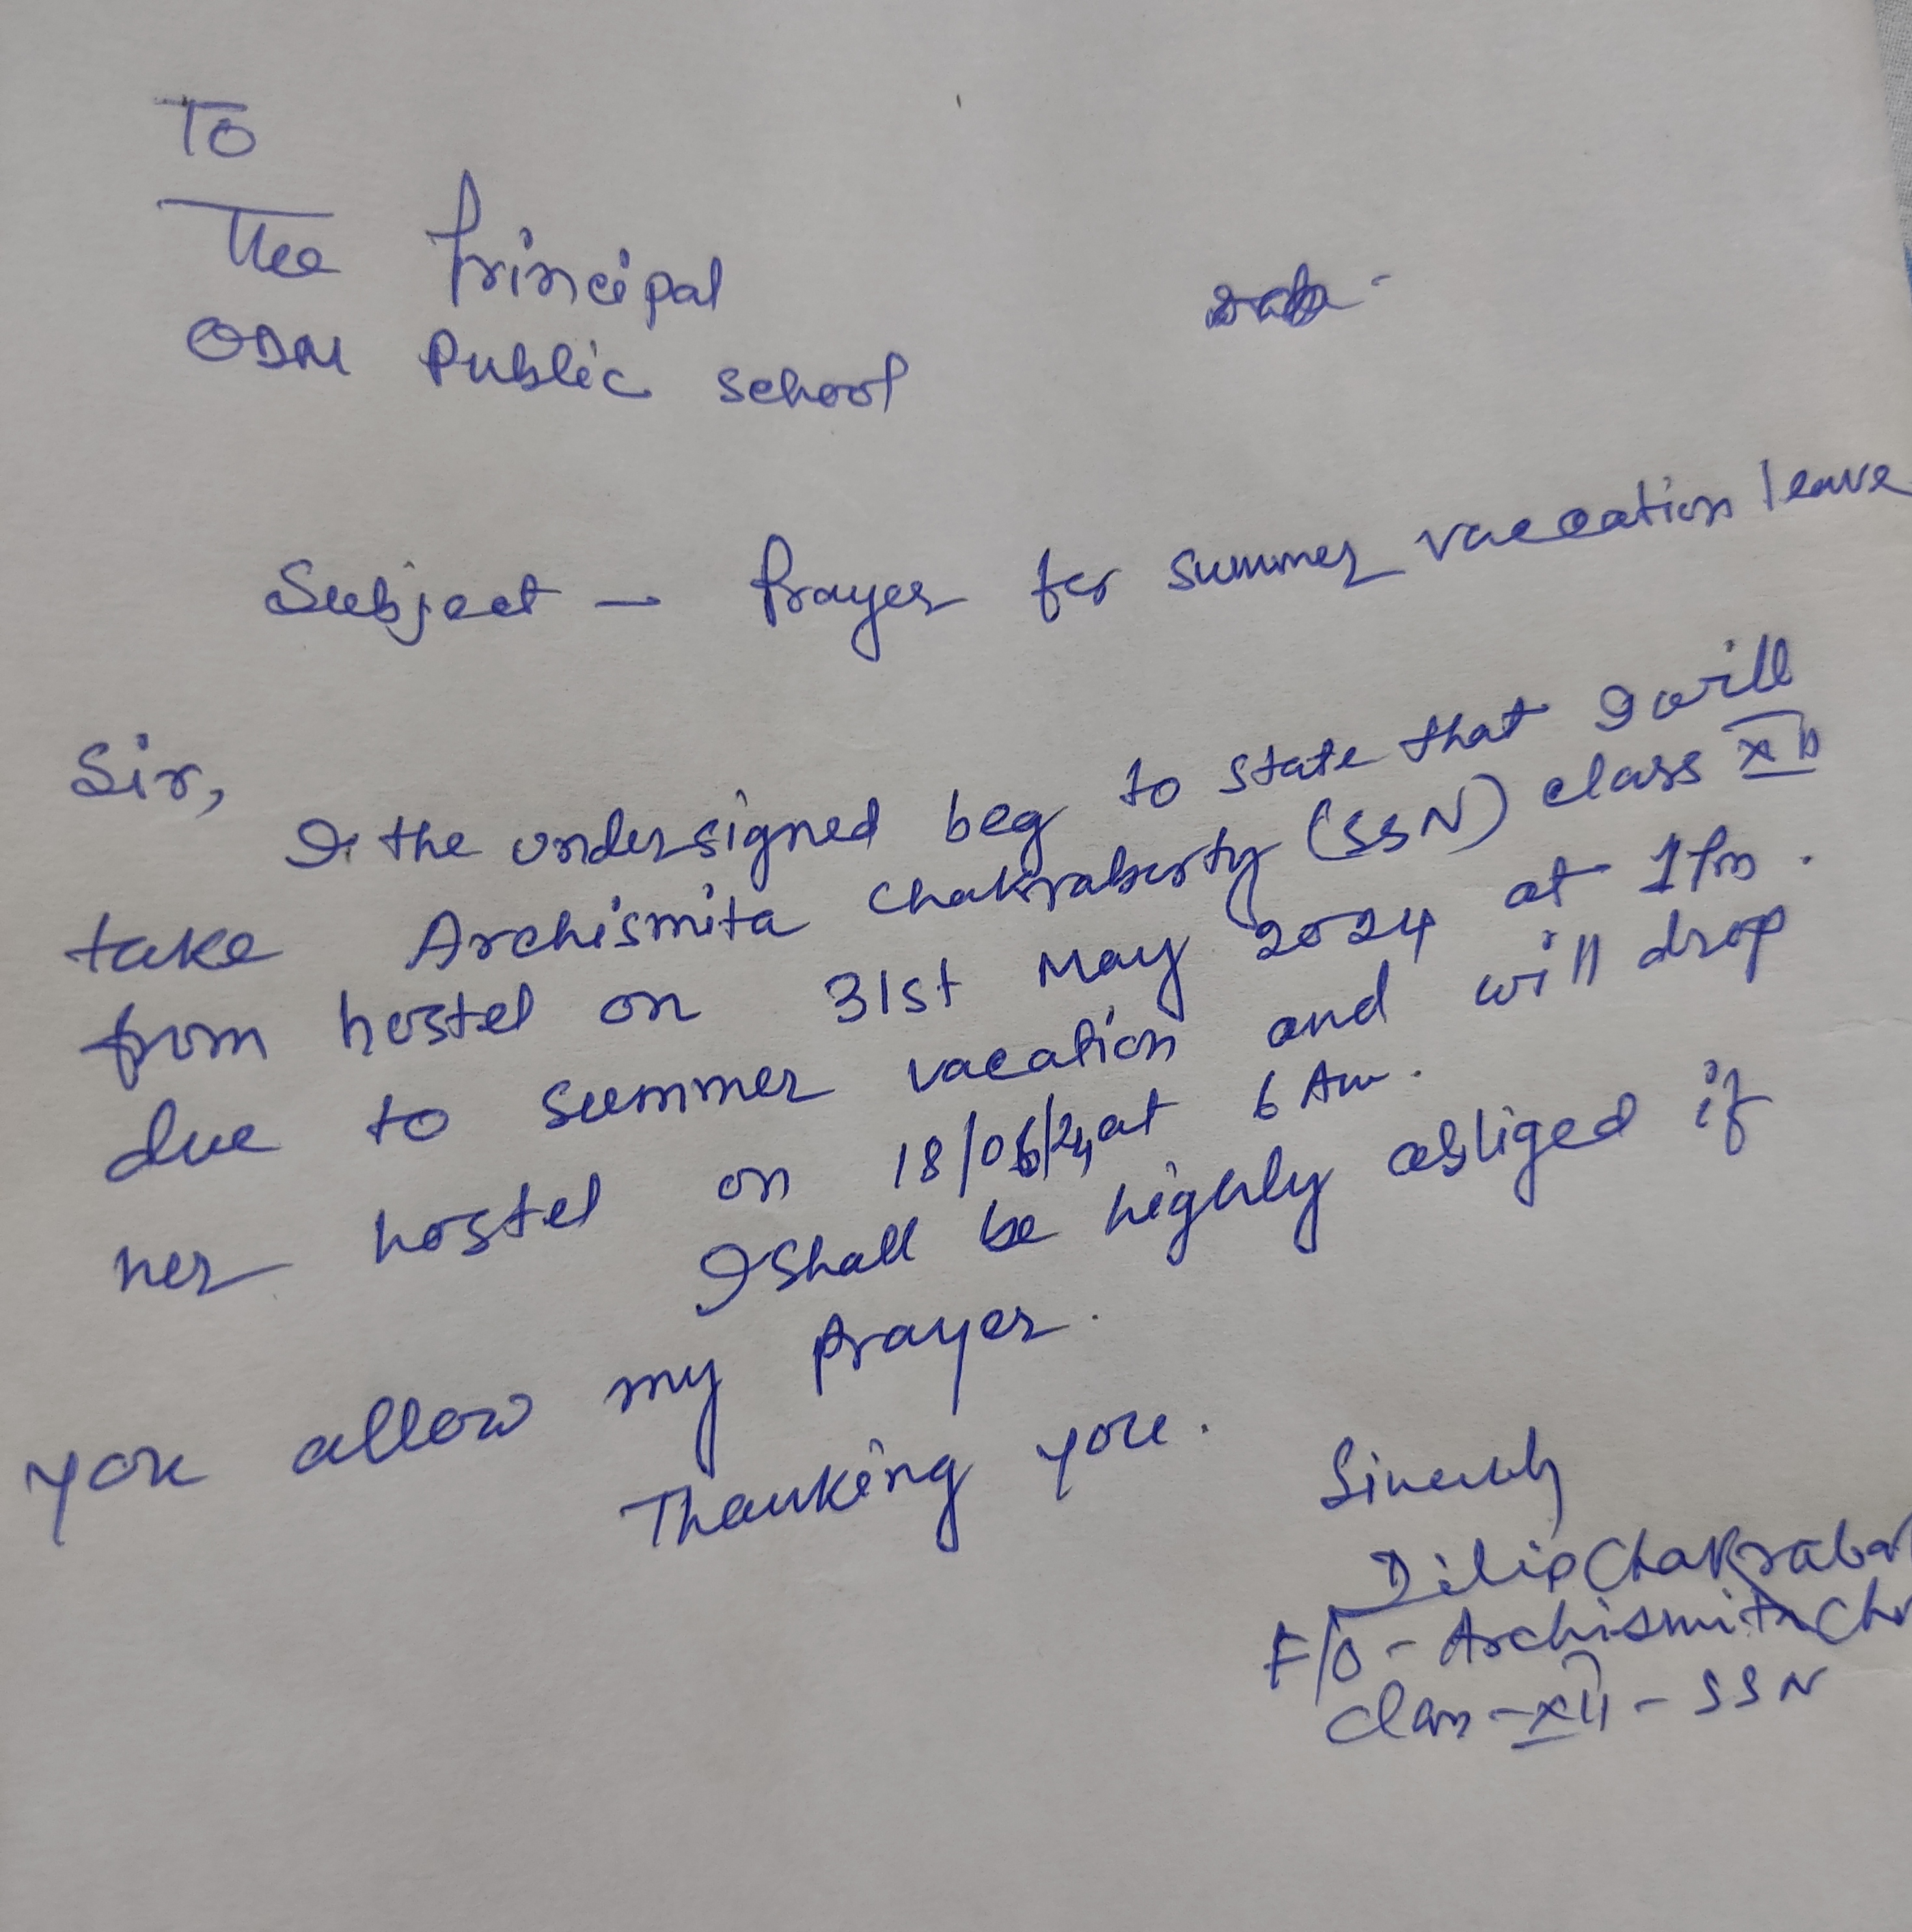 To
The Principal
ODM Public School
Subject – Prayer for summer vaccation leave
Sir,
I the undersigned beg to state that I will
take Archismita Chakraborty (SSN) class XII
from hostel on 31st May 2024 at 1 Pm.
due to summer vacation and will drop
her hostel on 18/06/24 at 6 Am.
I shall be highly obliged if
you allow my prayer.
Thanking you.
Sincerely
Dilip Chakrabar
F/O - Archismita Ch
Class - XII - SSN